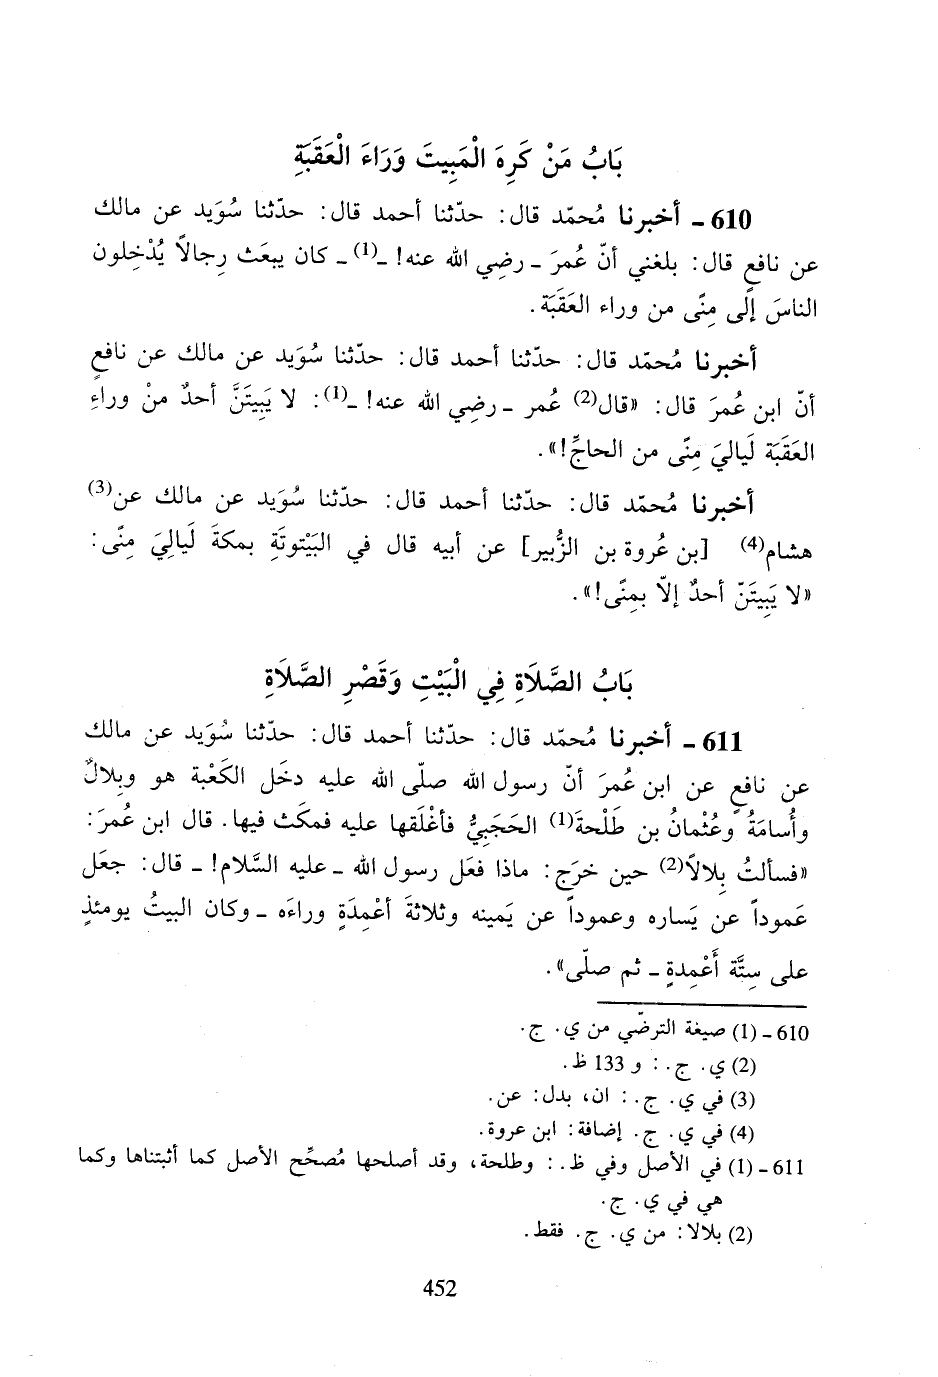 بَابُ مَنْ كَرِهَ الْمَبِيتَ وَرَاءَ الْعَقَبَةِ
610 ـ أخبرنا مُحمّد قال: حدّثنا أحمد قال: حدّثنا سُوَيد عن مالك
عن نافعٍ قال: بلغني أنّ عُمرَ ـ رضِي الله عنه! ـ(1) ـ كان يبعَث رِجالاً يُدْخِلون
الناسَ إلَى مِنًى من وراء العَقَبَة.
أخبرنا مُحمّد قال: حدّثنا أحمد قال: حدّثنا سُوَيد عن مالك عن نافعٍ
أنّ ابن عُمرَ قال: «قال(2) عُمر ـ رضِي الله عنه! ـ(1): لا يَبِيتَنَّ أحدٌ منْ وراءِ
العَقَبَة لَياليَ مِنًى من الحاجِّ!».
أخبرنا مُحمّد قال: حدّثنا أحمد قال: حدّثنا سُوَيد عن مالك عن(3)
هشام(4) [بن عُروة بن الزُّبير] عن أبيه قال في البَيْتوتَةِ بمكةَ لَيالِيَ مِنًّى:
«لا يَبِيتَنّ أحدٌ إلاّ بمِنًى!».
بَابُ الصَّلَاةِ فِي الْبَيْتِ وَقَصْرِ الصَّلَاةِ
611 ـ أخبرنا مُحمّد قال: حدّثنا أحمد قال: حدّثنا سُوَيد عن مالك
عن نافعٍ عن ابن عُمرَ أنّ رسول الله صلّى الله عليه دخَل الكَعْبة هو وبِلالٌ
وأُسامَةُ وعُثْمانُ بن طَلْحة(1) الحَجَبِيُّ فأغْلَقها عليه فمكَث فيها. قال ابن عُمرَ:
«فسألتُ بِلالاً(2) حين خرَج: ماذا فعَل رسول الله ـ عليه السَّلام! ـ قال: جعَل
عَموداً عن يَساره وعموداً عن يَمينه وثلاثةَ أعْمِدَةٍ وراءَه ـ وكان البيتُ يومئذٍ
على سِتَّة أَعْمِدةٍ ـ ثم صلّى».
610 ـ (1) صيغة الترضّي من ي. ج.
(2) ي. ج. : و 133 ظ.
(3) في ي. ج. : ان، بدل: عن.
(4) في ي. ج. إضافة: ابن عروة.
611 ـ (1) في الأصل وفي ظ. : وطلحة، وقد أصلحها مُصحِّح الأصل كما أثبتناها وكما
هي في ي. ج.
(2) بلالا: من ي. ج. فقط.
452